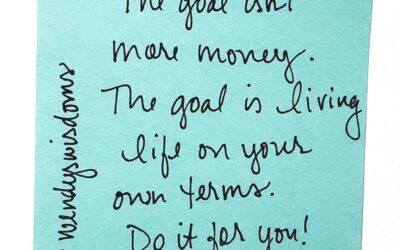 The goal isn't
more money.
The goal is living
life on your
own terms.
Do it for you!
wendyswisdoms